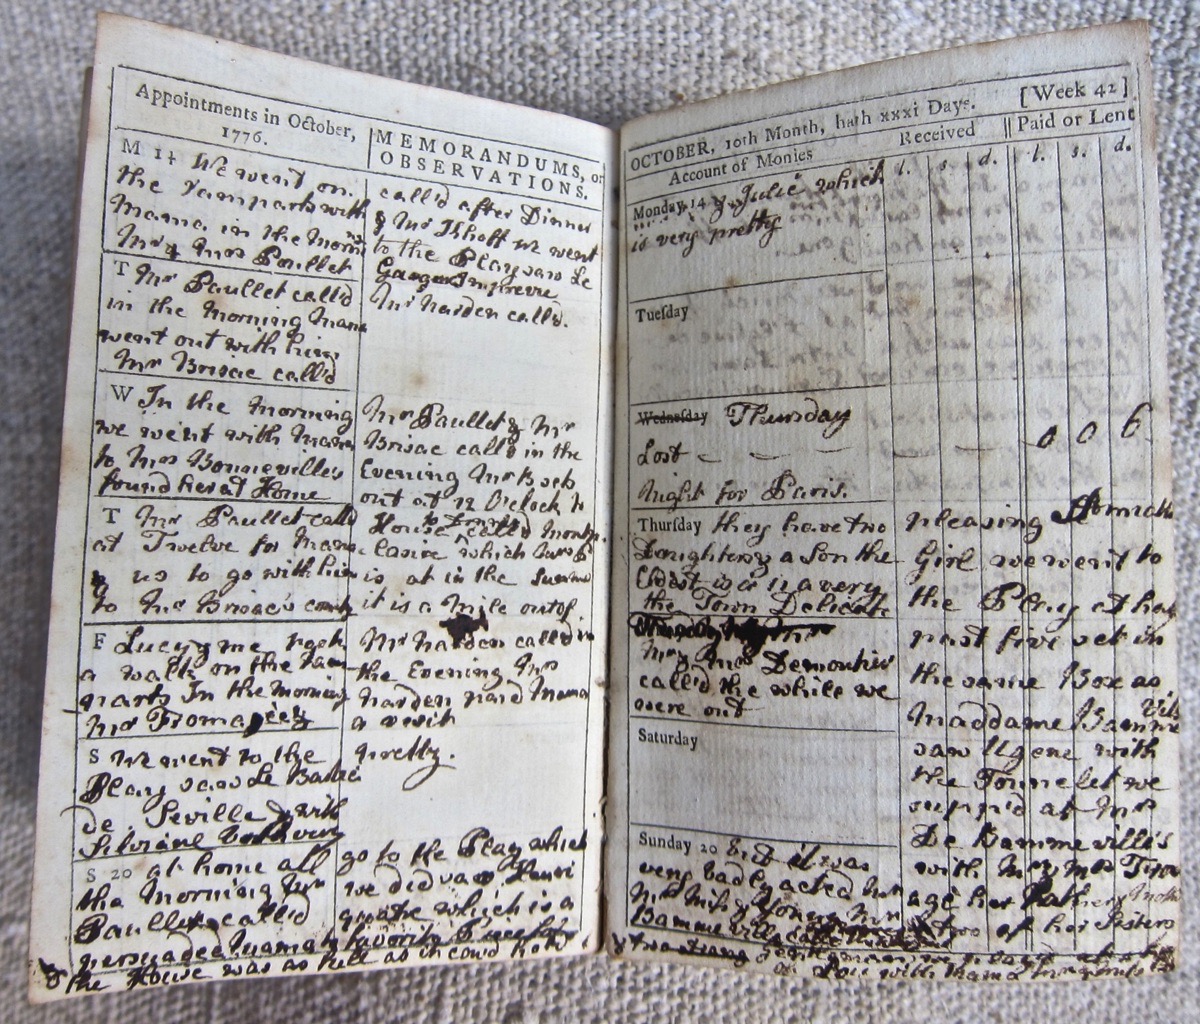 Appointments in October,
1776.
MEMORANDUMS, or
OBSERVATIONS.
M 14 We went on
the ramparts with
Mama in the Morn
Mr & Mrs Poullet
call'd after Dinner
& Mr Tkhoff we went
to the Play saw Le
Impreveu
T Mr Paullet call'd
in the Morning Mama
went out with him
Mr Brisac call'd
Mr Narden call'd.
W In the Morning
we went with Mama
to Mrs Bonnevilles
found her at Home
Mr Paullet & Mr
Brisac call'd in the
Evening Mr Buck
out at 12 O'clock
T Mr Paullet call'd
at Twelve for Mama
& us to go with him
to Mr Brisac's county
House to Dinner call'd
which Mrs B
is at in the Summ
it is a Mile out of
F Lucy & me took
a walk on the ram
parts In the Morning
Mr Fromagee
Mr Narden call'd in
the Evening Mrs
Narden paid Mama
a visit
S We went to the
Play saw Le Babié
de Seville & with
Silviane both very
pretty.
S 20 at home all
the Morning
Paullet call'd
persuaded Mamah
go to the Play which
we did saw Henri
quatre which is a
favorite Piece
the House was as full as it coud hold
OCTOBER, 10th Month, hath xxxi Days.
[Week 42]
Account of Monies
Received
Paid or Lent
l. s. d. l. s. d.
Monday 14 & Julie which
is very pretty
Tuesday
Wednesday Thursday
Lost - - - - - 0 0 6
Night for Paris.
Thursday they have two
Daughters & a Son the
Eldest is a very
the Town Delicate
Mr & Mrs Demoutier
call'd the while we
were out
Saturday
Sunday 20 but it was
very badly acted
Mr Miss & Young Mr
Bammeville
pleasing
Girl we went to
the Play at half
past five set in
the same Box as
Maddame Bamme
Vills
saw Ugene with
the Tonnelet we
supp'd at Mrs
De Bammeville's
with Mr & Mrs
age her Father Moth
& two of her Sisters
two
Lou with Mama